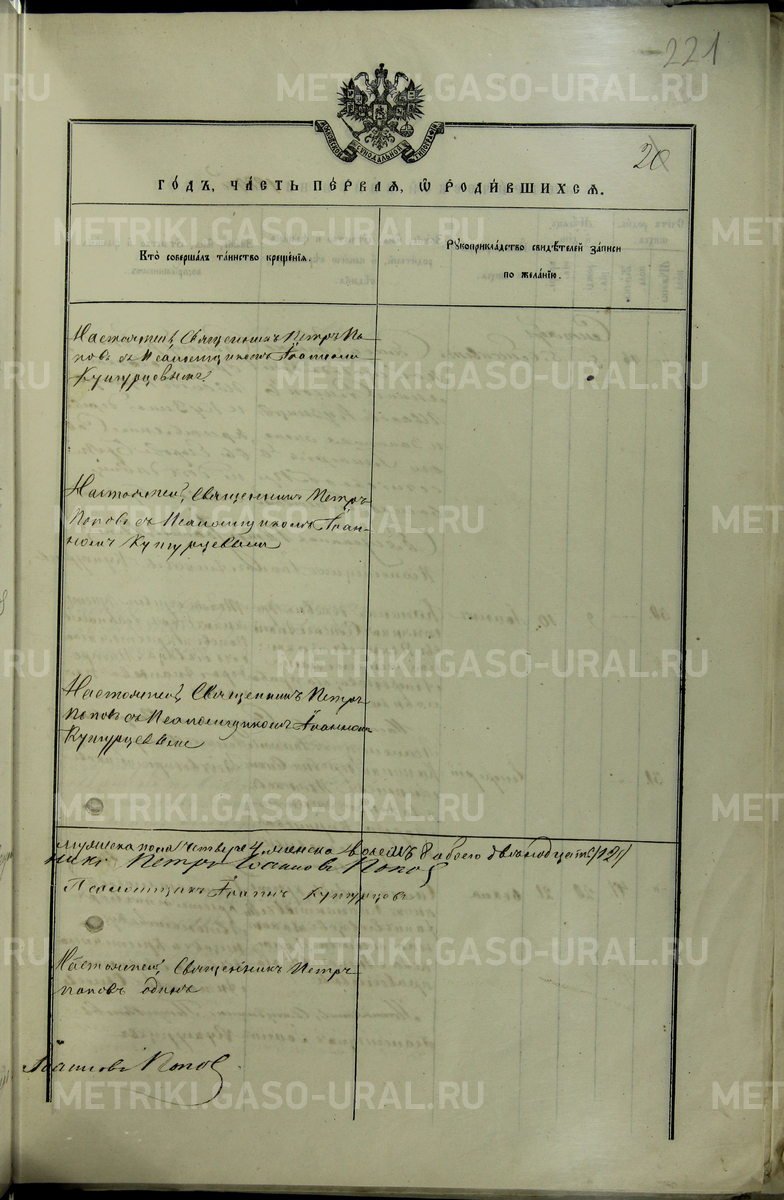 221
МОСКОВСКОЙ СѴНОДАЛЬНОЙ ТИПОГРАФІИ
20
ГО́ДЪ, ЧА́СТЬ ПЕ́РВАѦ, Ѽ РОДИ́ВШИХСѦ.
Кто̀ соверша́лъ та́инство креще́нїѧ.
Рꙋкоприкла́дство свидѣ́телей за́писи
по жела́нїю.
Настоятель, Священникъ Петръ По-
повъ съ Псаломщикомъ Іоанномъ
Кутурцевымъ.
Настоятель, Священникъ Петръ
Поповъ съ Псаломщикомъ Іоан-
номъ Кутурцевымъ
Настоятель, Священникъ Петръ
Поповъ съ Псаломщикомъ Іоанномъ
Кутурцевымъ
мужеска пола четверо 4 женска 8 обоего двѣнадцать /12/
никъ Петръ Поповъ
Псаломщикъ Іоаннъ Кутурцовъ
Настоятель, Священникъ Петръ
Поповъ одинъ
Поповъ
METRIKI.GASO-URAL.RU